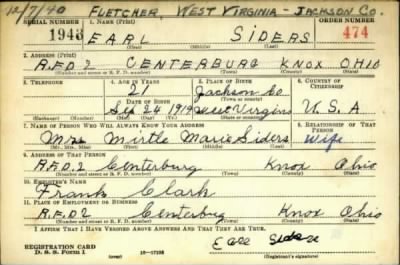 12/7/40 FLETCHER, WEST VIRGINIA - JACKSON CO.
SERIAL NUMBER 1. NAME (Print) ORDER NUMBER
1948 EARL SIDERS 474
(First) (Middle) (Last)
2. ADDRESS (Print)
R.F.D. 2 CENTERBURG KNOX OHIO
(Number and street or R. F. D. number) (Town) (County) (State)
3. TELEPHONE 4. AGE IN YEARS 5. PLACE OF BIRTH 6. COUNTRY OF CITIZENSHIP
21 Jackson Co
(Town or county)
DATE OF BIRTH
Sep 24 1919 West Virginia U.S.A
(Exchange) (Number) (Mo.) (Day) (Yr.) (State or country)
7. NAME OF PERSON WHO WILL ALWAYS KNOW YOUR ADDRESS 8. RELATIONSHIP OF THAT PERSON
Mrs Mirtle Marie Siders Wife
(Mr., Mrs., Miss) (First) (Middle) (Last)
9. ADDRESS OF THAT PERSON
R.F.D. 2 Centerburg Knox Ohio
(Number and street or R. F. D. number) (Town) (County) (State)
10. EMPLOYER'S NAME
Frank Clark
11. PLACE OF EMPLOYMENT OR BUSINESS
R.F.D 2 Centerbug Knox Ohio
(Number and street or R. F. D. number) (Town) (County) (State)
I AFFIRM THAT I HAVE VERIFIED ABOVE ANSWERS AND THAT THEY ARE TRUE.
REGISTRATION CARD
D. S. S. Form 1 16-17105 (Registrant's signature)